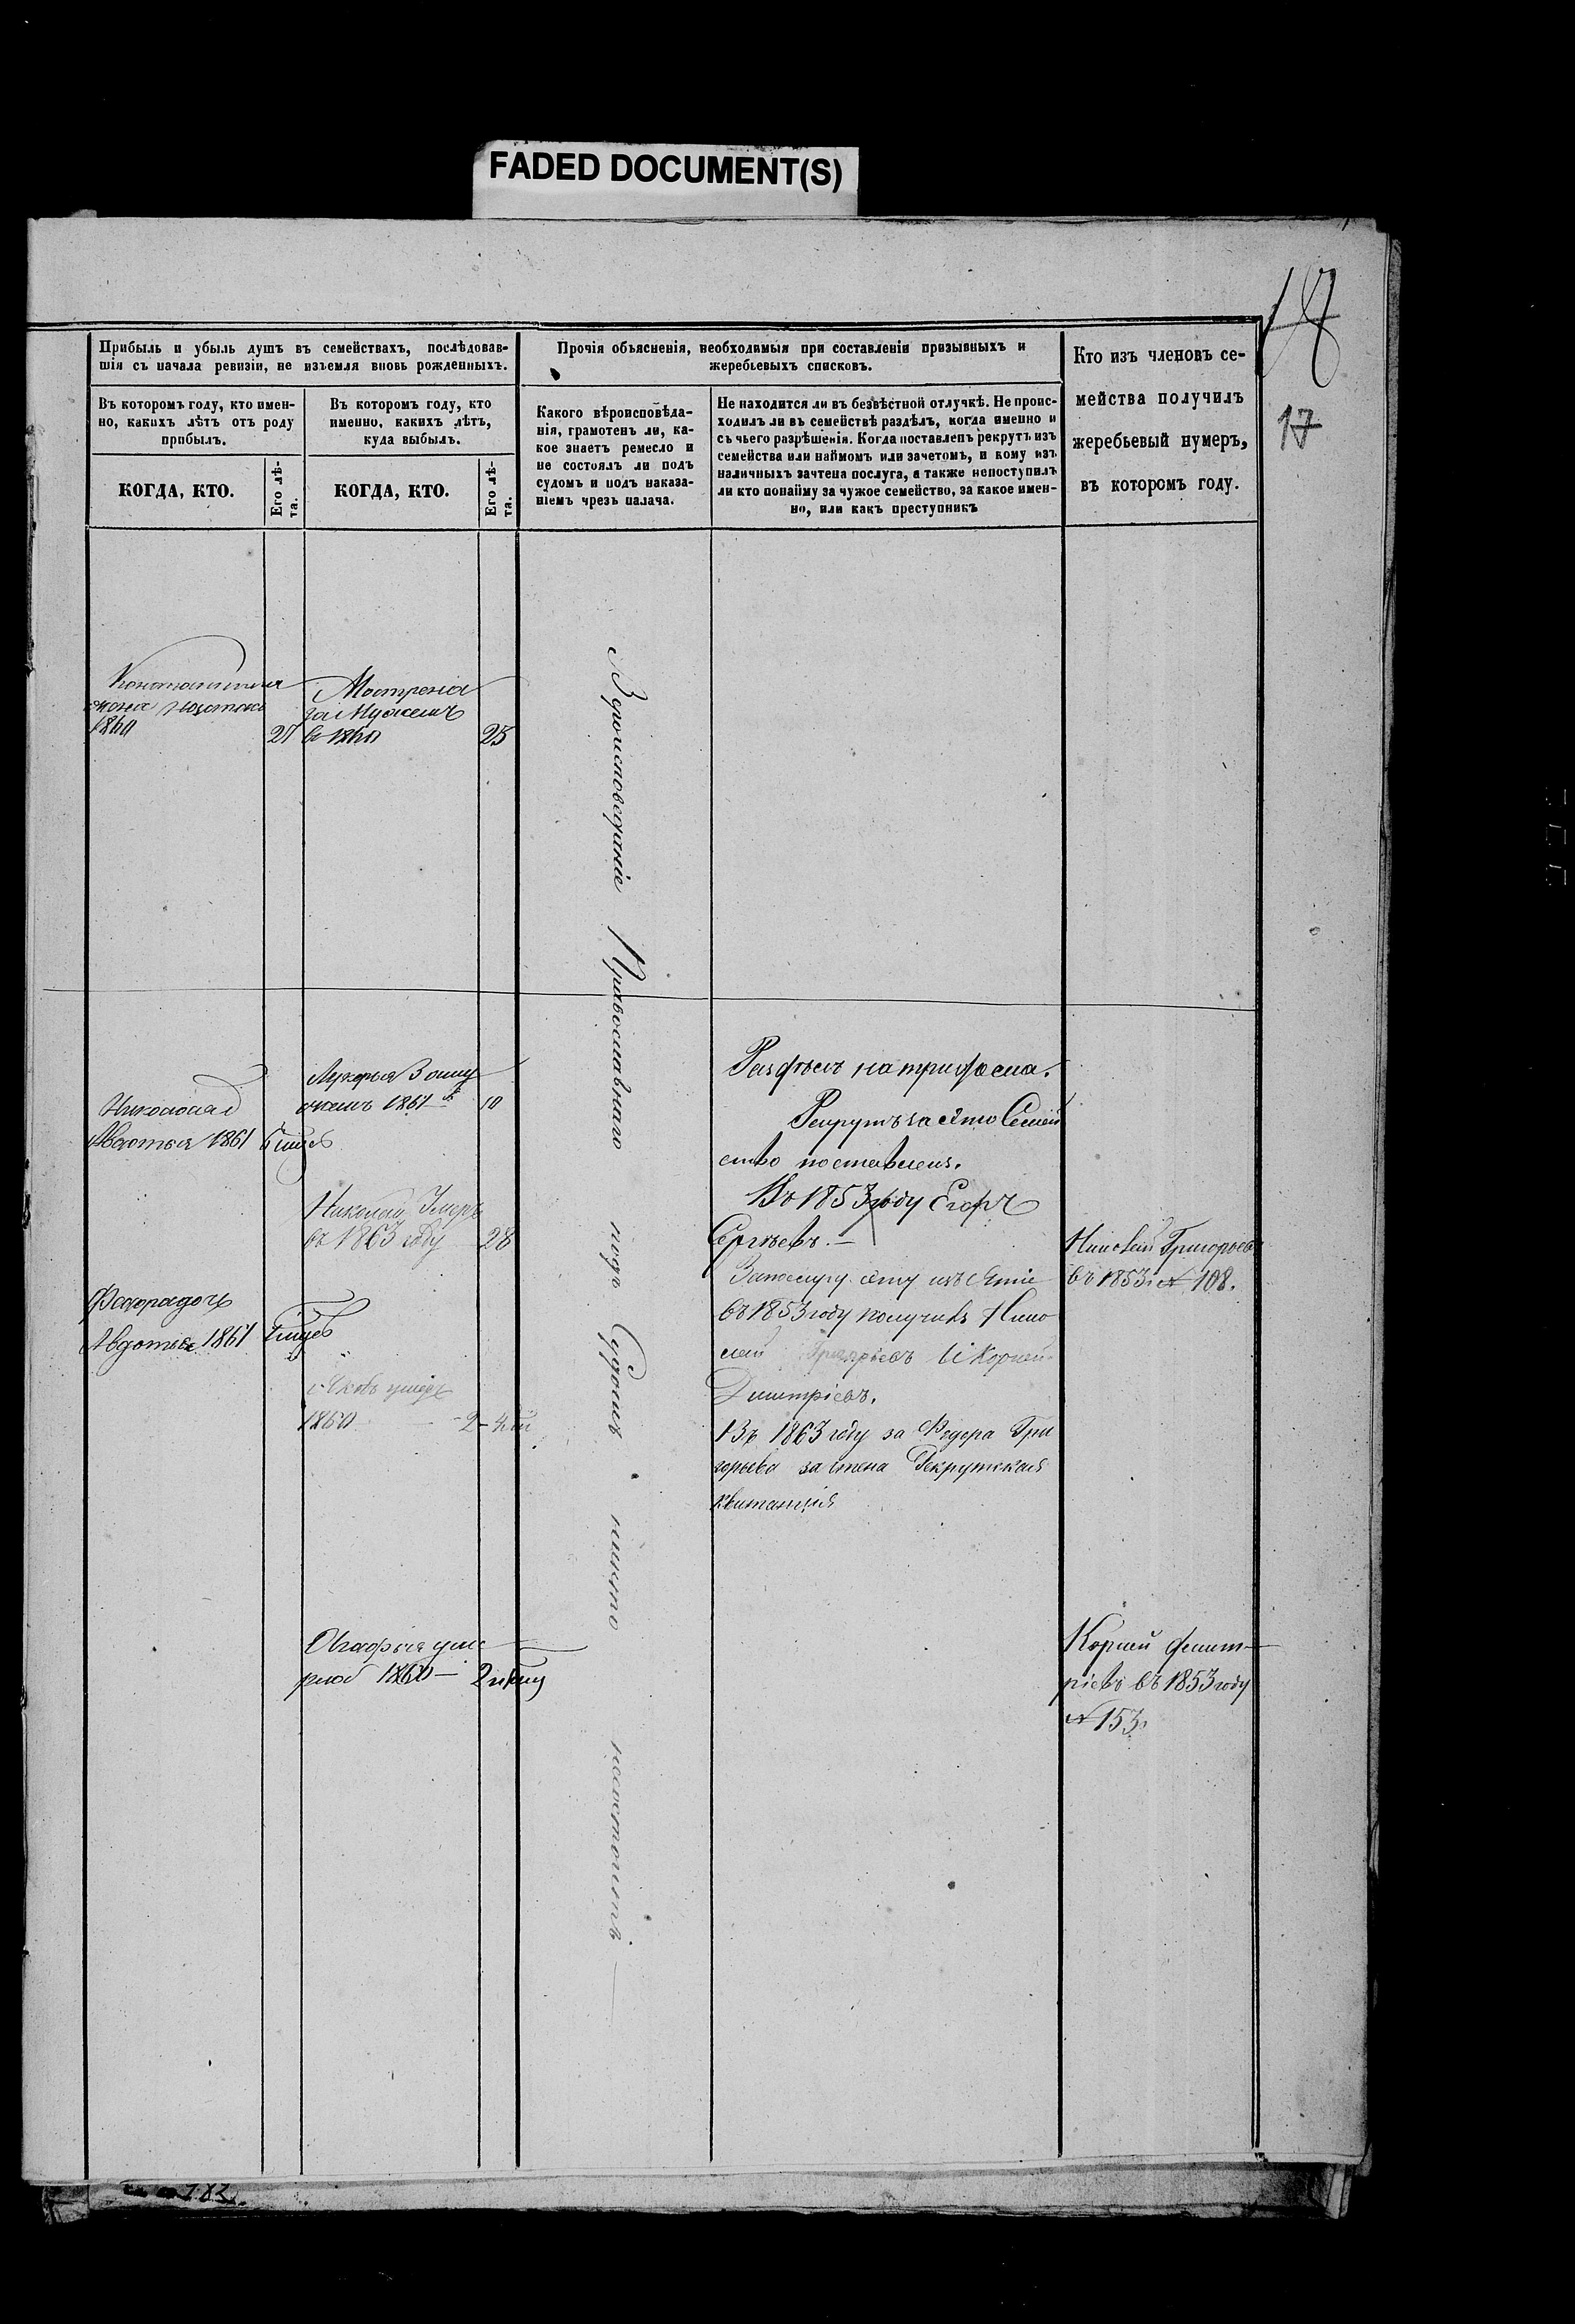 FADED DOCUMENT(S)
17
Прибыль и убыль душъ въ семействахъ, послѣдовав-
шія съ начала ревизіи, не изъемля вновь рожденныхъ.
Прочія объясненія, необходимыя при составленіи призывныхъ и
жеребьевыхъ списковъ.
Кто изъ членовъ се-
мейства получилъ
жеребьевый нумеръ,
въ которомъ году.
Въ которомъ году, кто имен-
но, какихъ лѣтъ отъ роду
прибылъ.
Въ которомъ году, кто
именно, какихъ лѣтъ,
куда выбылъ.
Какого вѣроисповѣда-
нія, грамотенъ ли, ка-
кое знаетъ ремесло и
не состоялъ ли подъ
судомъ и подъ наказа-
ніемъ чрезъ палача.
Не находится ли въ безвѣстной отлучкѣ. Не проис-
ходилъ ли въ семействѣ раздѣлъ, когда именно и
съ чьего разрѣшенія. Когда поставленъ рекрутъ изъ
семейства или наймомъ или зачетомъ, и кому изъ
наличныхъ зачтена послуга, а также непоступилъ
ли кто понайму за чужое семейство, за какое имен-
но, или какъ преступникъ
КОГДА, КТО.
Его лѣ-
та.
КОГДА, КТО.
Его лѣ-
та.
жена
1860
27
Мотрена
въ 1860
25
Вероисповеданіе Православнаго подъ Судомъ никто несостоитъ
Лукерья Заму
жемъ 1861 10
Авдотья 1861
Николай Умеръ
въ 1863 году 28
Авдотья 1861
Яковъ умеръ
1860 2
Агафья уме
рла 1860
Раздѣлъ на три
Рекрутъ за сѣмо Семей
ство поставленъ.
Въ 1853 году Егоръ
Сергѣевъ.
въ 1853 году получилъ Нико
лай Григорьевъ И Корней
Дмитріевъ.
Въ 1863 году за Федора Гри
горьева зачтена Рекрутская
квитанція
Николай Григорьев
въ 1853 № 108.
Корней Дмит-
ріевъ въ 1853 году
№ 153.
183.